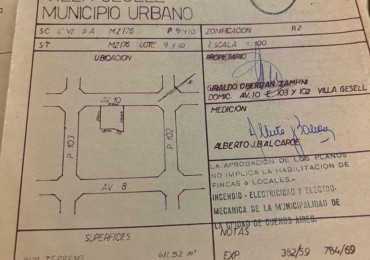 VILLA GESELL
MUNICIPIO URBANO
SC CVI SA M2176 P 9 y 10
ZONIFICACION R2
ST M2176 LOTE 9 y 10
ESCALA 1:100
UBICACION
PROPIETARIO
AV. 10
P 103
P 102
AV 8
GIRALDO OBERDAN ZAMPINI
DOMIC. AV. 10 E. 103 Y 102 VILLA GESELL
MEDICION
ALBERTO J. BALCARCE
LA APROBACION DE LOS PLANOS
NO IMPLICA LA HABILITACION DE
FINCAS o LOCALES.-
INCENDIO - ELECTRICIDAD Y ELECTRO-
MECANICA DE LA MUNICIPALIDAD DE
LA CIUDAD DE BUENOS AIRES.
SUPERFICIES
NOTAS
SUP. TERRENO 611.52 m²
EXP 382/59 784/69